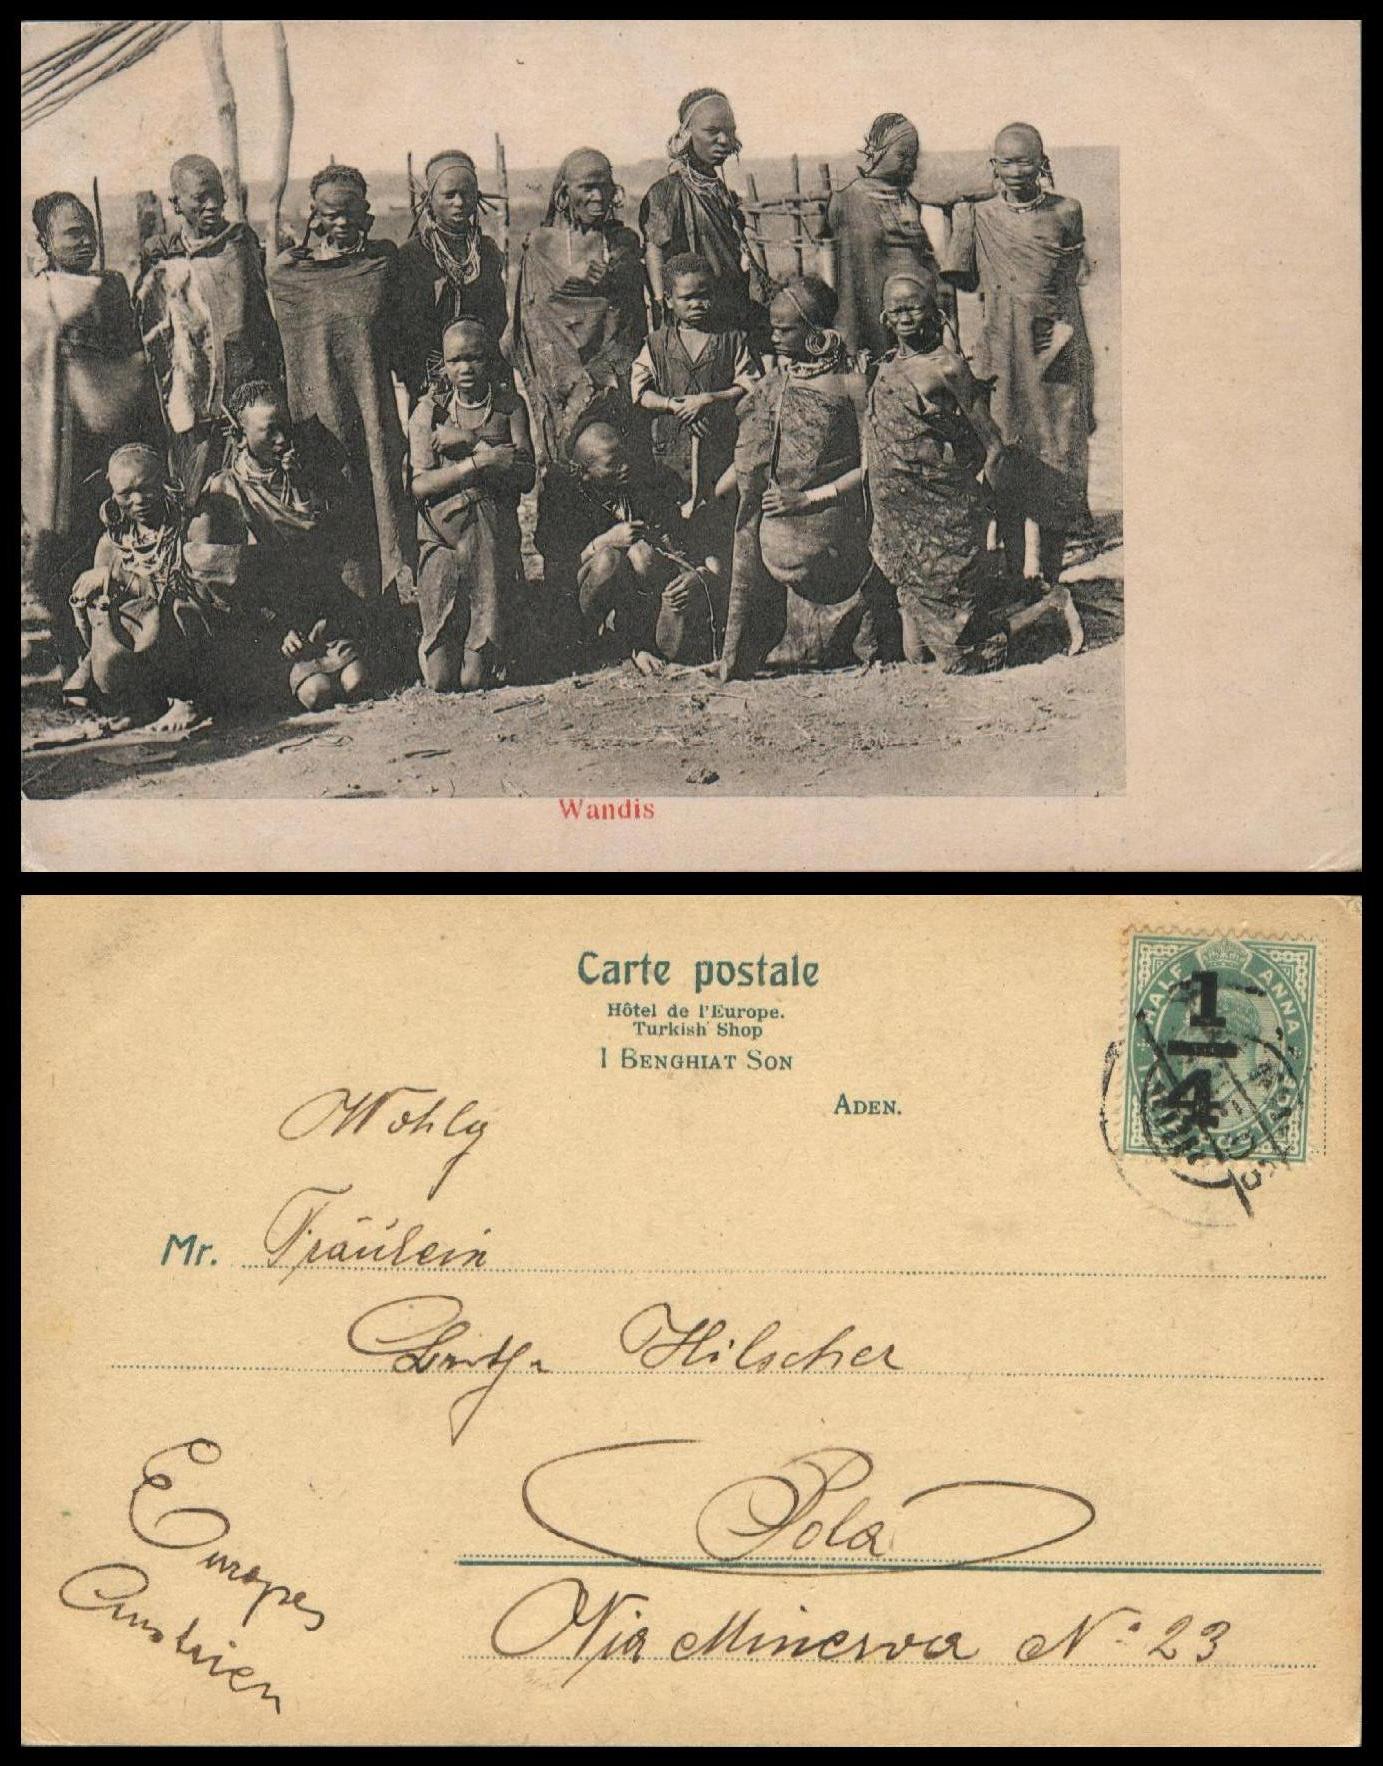 Wandis
Carte postale
Hôtel de l'Europe.
Turkish Shop
I BENGHIAT SON
ADEN.
HALF ANNA
1
4
Wohlg
Mr. Fräulein
Hilscher
Pola
Via Minerva No 23
Europa
Austrien